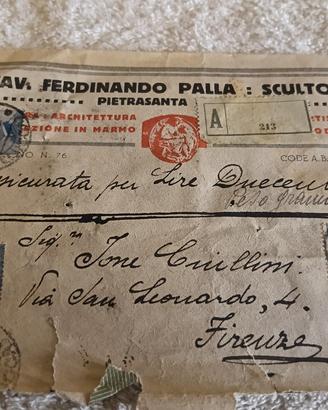 AV. FERDINANDO PALLA : SCULTO
PIETRASANTA
RA : ARCHITETTURA
ZIONE IN MARMO
A
213
N. 76
CODE A.B.
ssicurata per Lire Duecen
Peso grammi
Sig.na Ione Ciullini.
Via San Leonardo, 4.
Firenze